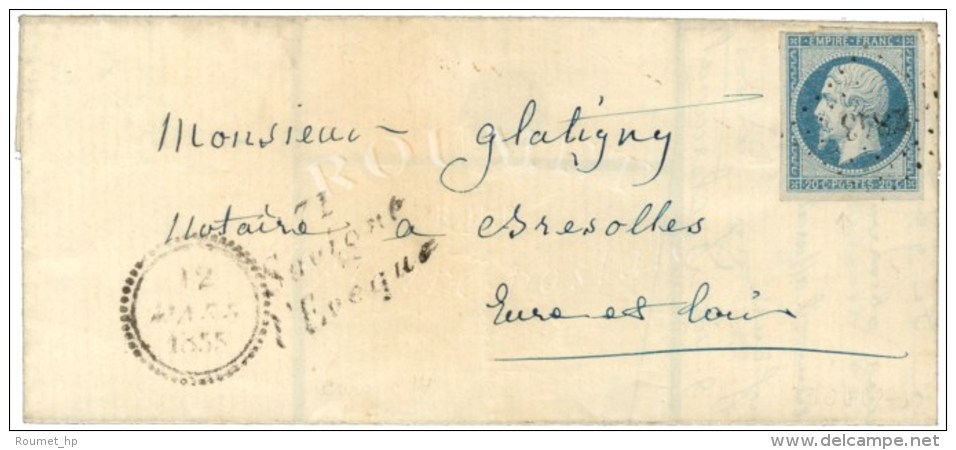 EMPIRE FRANC
20 C POSTES 20 C
Monsieur Glatigny
Notaire a Bresolles
Eure et Loir
71
Savigné
l'Evêque
12
MARS
1855
Roumet_hp
http://www.delcampe.net